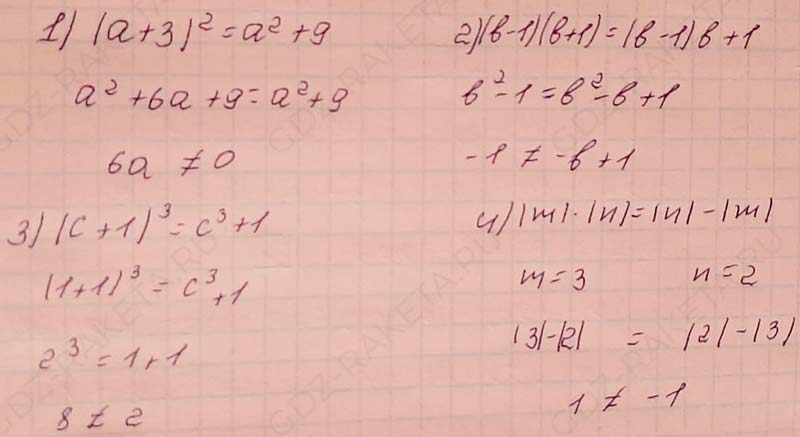 1) (a+3)² = a² + 9
a² + 6a + 9 = a² + 9
6a ≠ 0
2) (в-1)(в+1) = (в-1)в + 1
в² - 1 = в² - в + 1
-1 ≠ -в + 1
3) (c+1)³ = c³ + 1
(1+1)³ = c³ + 1
2³ = 1 + 1
8 ≠ 2
4) |m| · |n| = |n| - |m|
m = 3 n = 2
|3| - |2| = |2| - |3|
1 ≠ -1
GDZ-RAKETA.RU